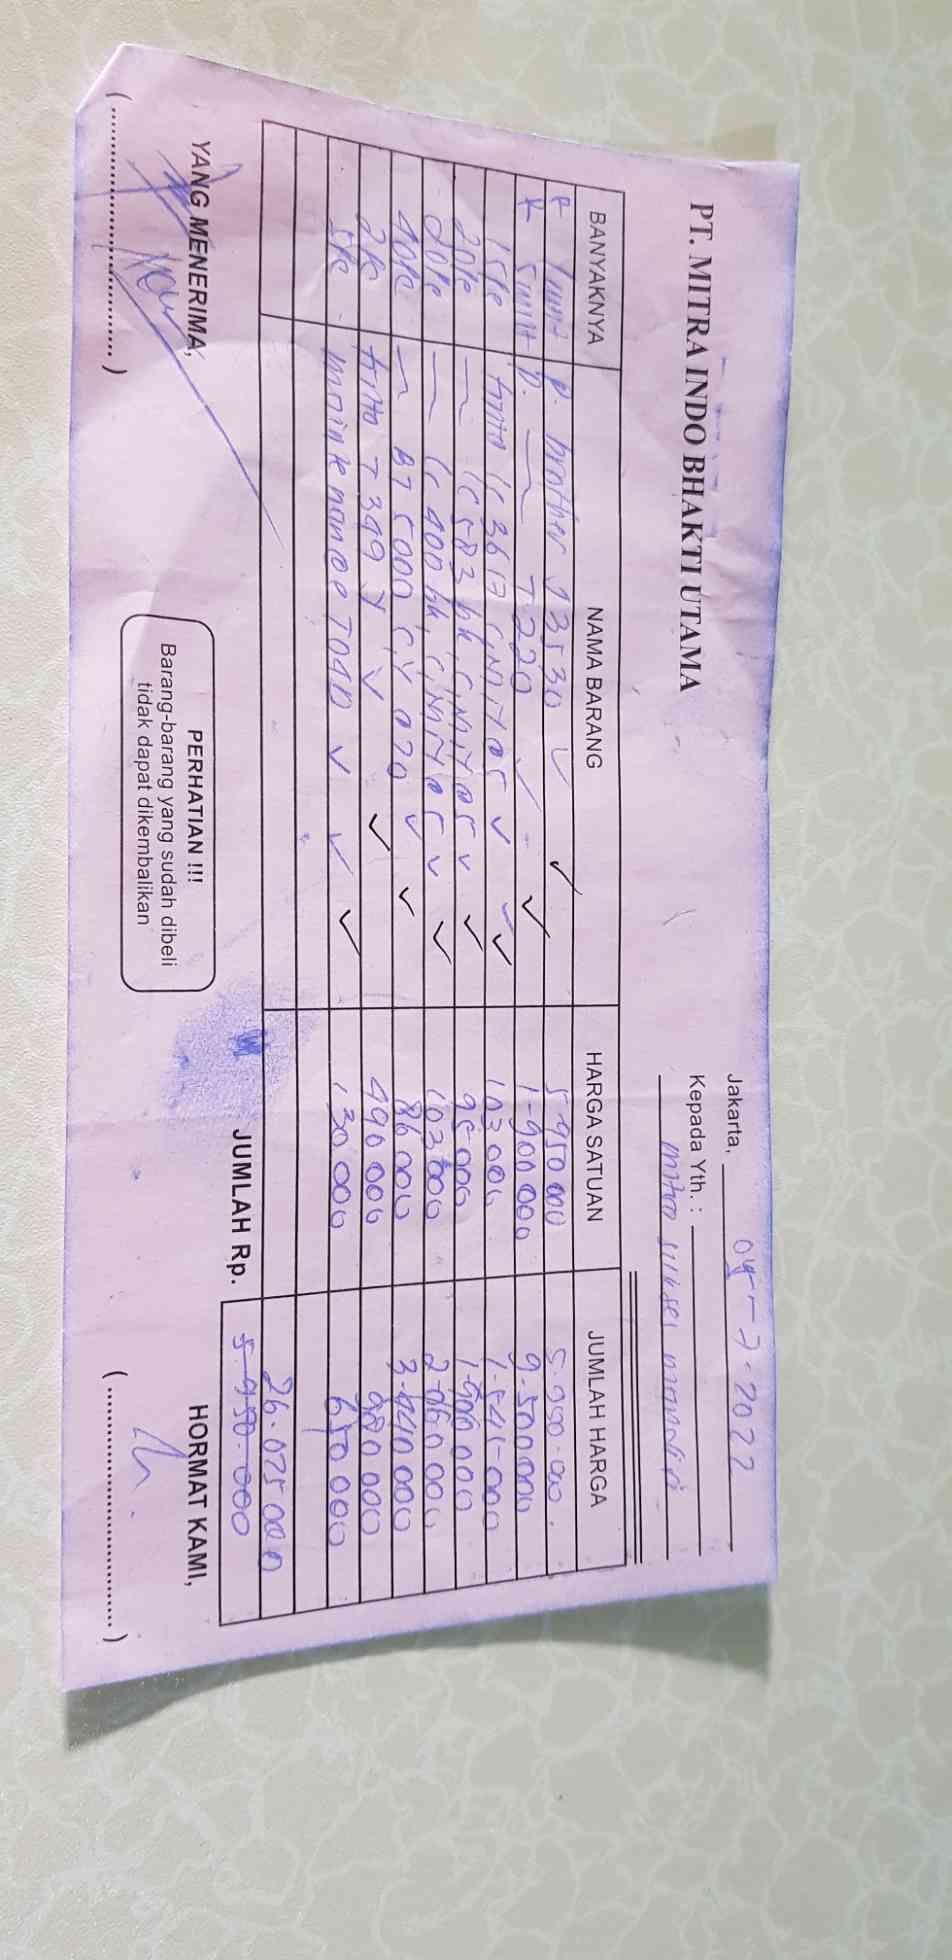 PT. MITRA INDO BHAKTI UTAMA
Jakarta, 04-7-2022
Kepada Yth. :
mitra sukses mandiri
BANYAKNYA NAMA BARANG HARGA SATUAN JUMLAH HARGA
1 unit P. brother J3530 5.950.000 5.950.000
5 unit P. T220 1.900.000 9.500.000
15 pc tinta LC 3617 C,M,Y 103.000 1.545.000
20 pc LC 583 bk, C,M,Y 95.000 1.900.000
20 pc LC 400 bk, C,M,Y 103.000 2.060.000
40 pc BT 5000 C,Y 86.000 3.440.000
2 pc tinta T 349 Y 490.000 980.000
5 pc T04D 130.000 650.000
26.025.000
JUMLAH Rp. 5.950.000
YANG MENERIMA,
PERHATIAN !!!
Barang-barang yang sudah dibeli
tidak dapat dikembalikan
HORMAT KAMI,